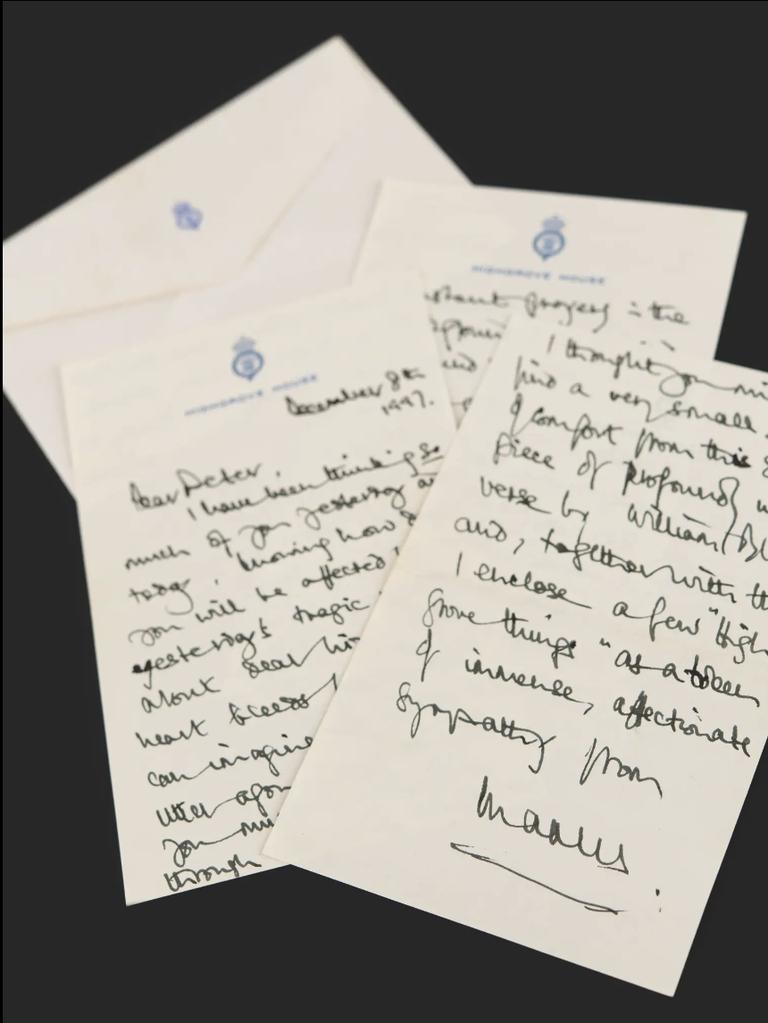 HIGHGROVE HOUSE
December 8th
1997.
Dear Peter,
I have been thinking so
much of you yesterday
today, knowing how
you will be affected
yesterday's tragic
about dear
heart bleeds
can imagine
utter
you
through
HIGHGROVE HOUSE
prayers : the
I thought you
find a very small
of comfort from this
piece of profound
verse by William
and, together with
I enclose a few "High
grove things" as a token
of immense, affectionate
sympathy from
Charles